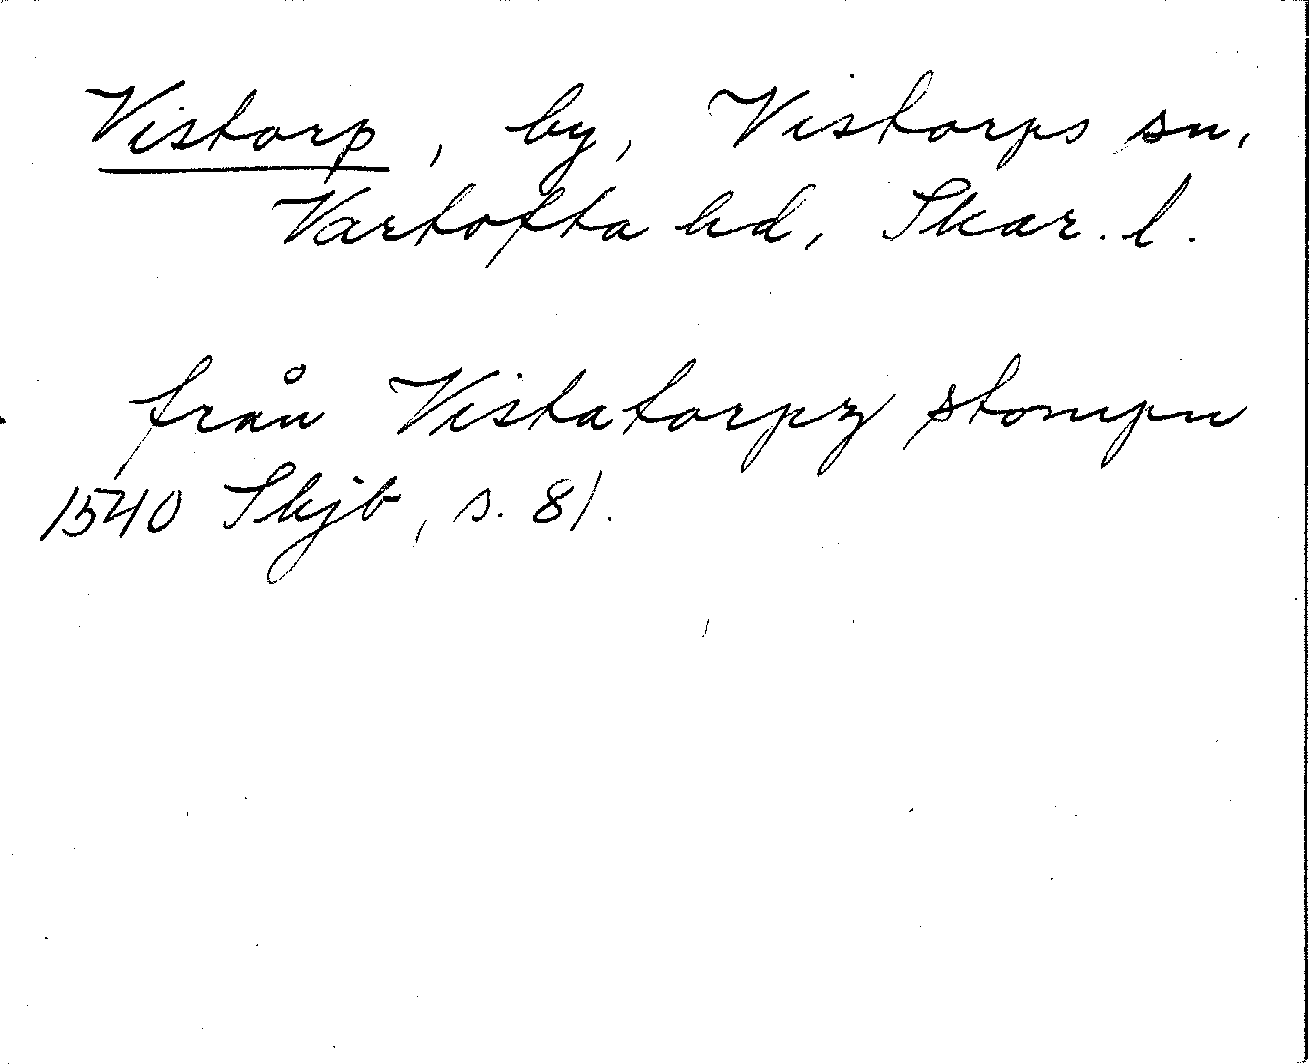 Vistorp, by, Vistorps sn,
Vartofta hd, Skar. l.
från Vistatorpz stompn
1540 Skjb, s. 81.